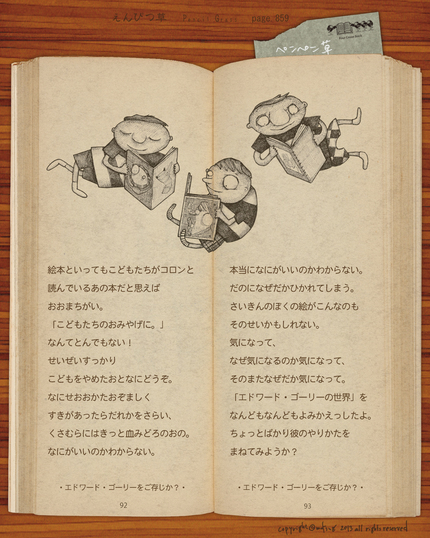 ぞんぴつ草 Pencil Grass page.859
ぺんぺん草
絵本といってもこどもたちがコロンと
読んでいるあの本だと思えば
おおまちがい。
「こどもたちのおみやげに。」
なんてとんでもない!
せいぜいすっかり
こどもをやめたおとなにどうぞ。
なにせおおかたおぞましく
すきがあったらだれかをさらい、
くさむらにはきっと血みどろのおの。
なにがいいのかわからない。
・エドワード・ゴーリーをご存じか?・
92
本当になにがいいのかわからない。
だのになぜだかひかれてしまう。
さいきんのぼくの絵がこんなのも
そのせいかもしれない。
気になって、
なぜ気になるのか気になって、
そのまたなぜだか気になって。
「エドワード・ゴーリーの世界」を
なんどもなんどもよみかえったしよ。
ちょっとばかり彼のやりかたを
まねてみようか?
・エドワード・ゴーリーをご存じか?・
93
all rights reserved